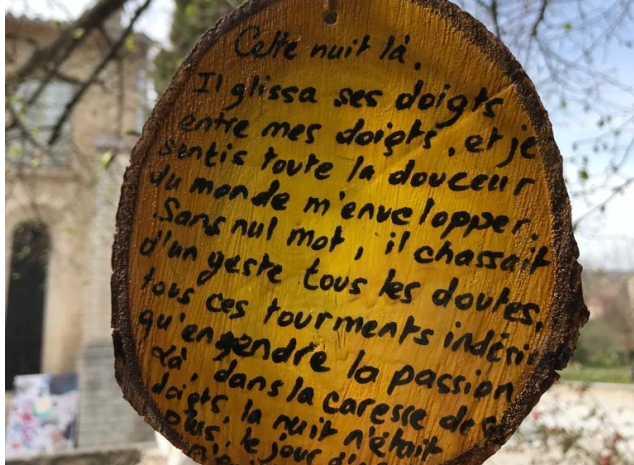 Cette nuit là,
Il glissa ses doigts
entre mes doigts, et je
sentis toute la douceur
du monde m'envelopper.
Sans nul mot, il chassait
d'un geste tous les doutes,
tous ces tourments
qu'engendre la passion
Là, dans la caresse de
doigts, la nuit n'était
plus, le jour